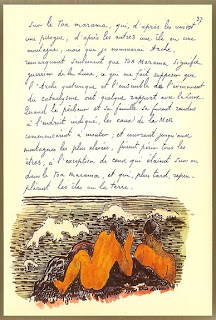 37
Sur le Toa marama, qui, d'après les uns est
une pirogue, d'après les autres une île ou une
montagne, mais que je nommerai Arche,
renseignant seulement que Toa marama signifie
guerrier de la lune, ce qui me fait supposer que
l'Arche quelconque et l'ensemble de l'évènement
du cataclysme ont quelque rapport avec la lune.
Quand le pêcheur et sa famille se furent rendus
à l'endroit indiqué, les eaux de la Mer
commencèrent à monter; et couvrant jusqu'aux
montagnes les plus élevées, firent périr tous les
êtres, à l'exception de ceux qui étaient sur ou
dans le Toa marama, et qui, plus tard, repeu-
plèrent les îles ou la terre.